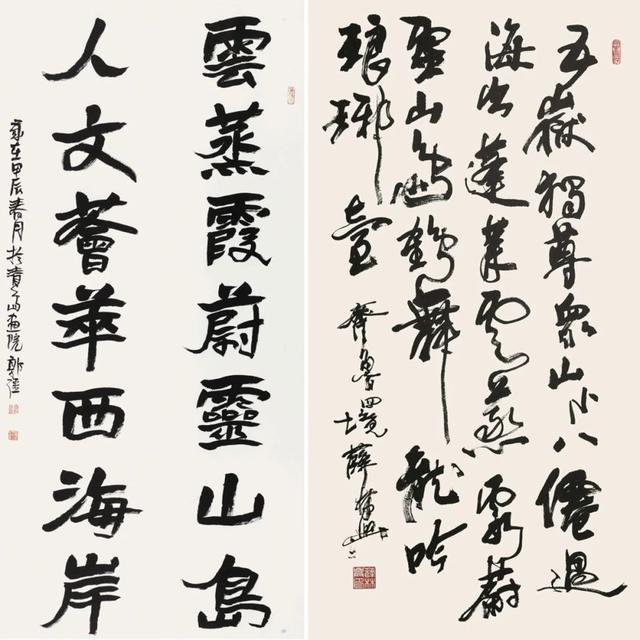 雲蒸霞蔚靈山島
人文薈萃西海岸
歲在甲辰春月於青島畫院
五嶽獨尊眾山小八僊過
海出蓬萊雲蒸霞蔚
靈山島鶴舞龍吟
琅琊臺
齊魯四境 薛林興